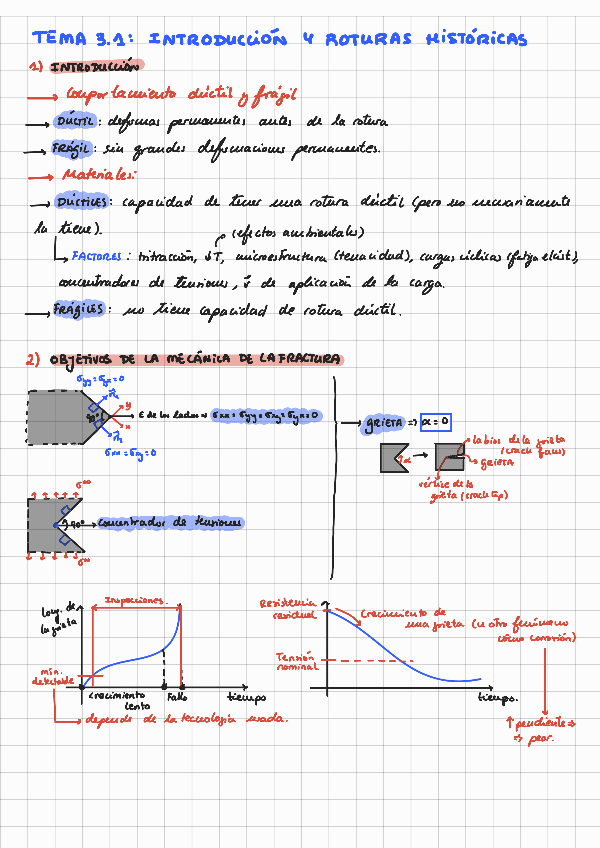 TEMA 3.1: INTRODUCCIÓN Y ROTURAS HISTÓRICAS
1) INTRODUCCIÓN
→ Comportamiento dúctil y frágil
→ DÚCTIL: deformas permanentes antes de la rotura
→ FRÁGIL: sin grandes deformaciones permanentes.
→ Materiales:
→ DÚCTILES: capacidad de tener una rotura dúctil (pero no necesariamente
la tiene).
(efectos ambientales)
FACTORES: triaxicación, ↓T, microestructura (tenacidad), cargas cíclicas (fatiga elást),
concentradores de tensiones, v̇ de aplicación de la carga.
→ FRÁGILES: no tiene capacidad de rotura dúctil.
2) OBJETIVOS DE LA MECÁNICA DE LA FRACTURA
σyy = σyx = 0
n1
y
90°
x
n2
σxx = σxy = 0
→ E de los lados ⇒ σxx = σyy = σxy = σyx = 0
→ GRIETA ⇒ α = 0
α
labios de la grieta
(crack faces)
GRIETA
vértice de la
grieta (crack tip)
σ∞
90°
concentrador de tensiones
σ∞
Long. de
la grieta
Inspecciones.
mín.
detectable
crecimiento
lento
Fallo
tiempo
depende de la tecnología usada.
Resistencia
residual
Crecimiento de
una grieta (u otro fenómeno
como corrosión)
Tensión
nominal
tiempo.
↑ pendiente ⇒
⇒ peor.